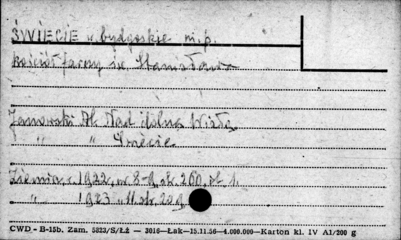 ŚWIECIE w. bydgoskie m.p.
Kościół farny św. Stanisława
Janowski Al. Nad dolną Wisłą
" " Świecie
Ziemia r. 1922, nr. 8-9, str. 260, il. 1.
" 1923 " 11. str. 229
CWD - B-15b. Zam. 5823/S/Łż — 3016—Łak—15.11.56—4.000.000—Karton kl. IV A1/200 g